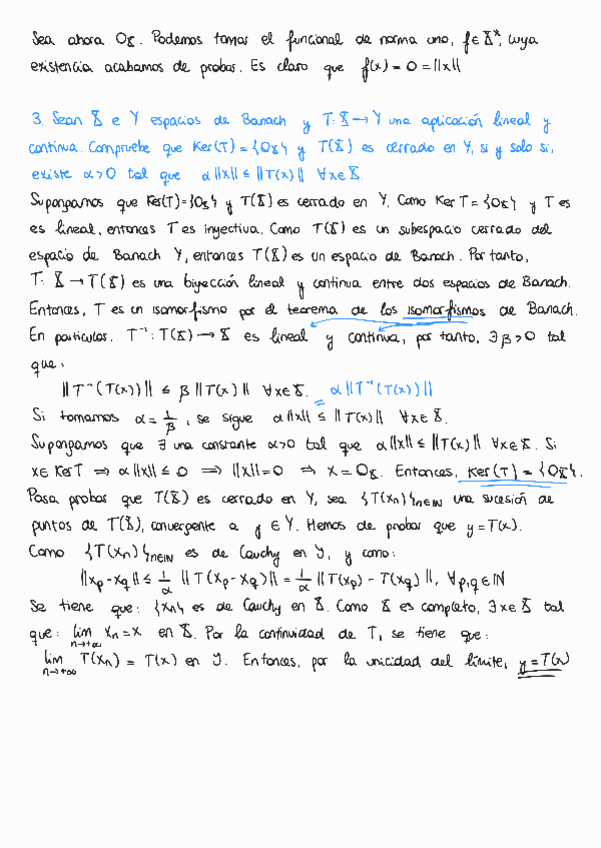 Sea ahora 0𝕏. Podemos tomar el funcional de norma uno, f ∈ 𝕏*, cuya
existencia acabamos de probar. Es claro que f(x) = 0 = ||x||
3. Sean 𝕏 e Y espacios de Banach y T: 𝕏 → Y una aplicación lineal y
continua. Compruebe que Ker(T) = {0𝕏} y T(𝕏) es cerrado en Y, si y solo si,
existe α>0 tal que α||x|| ≤ ||T(x)|| ∀x∈𝕏.
Supongamos que Ker(T)={0𝕏} y T(𝕏) es cerrado en Y. Como Ker T = {0𝕏} y T es
es lineal, entonces T es inyectiva. Como T(𝕏) es un subespacio cerrado del
espacio de Banach Y, entonces T(𝕏) es un espacio de Banach. Por tanto,
T: 𝕏 → T(𝕏) es una biyección lineal y continua entre dos espacios de Banach.
Entonces, T es un isomorfismo por el teorema de los isomorfismos de Banach.
En particular. T⁻¹: T(𝕏) → 𝕏 es lineal y continua, por tanto, ∃β>0 tal
que:
||T⁻¹(T(x))|| ≤ β||T(x)|| ∀x∈𝕏. = α||T⁻¹(T(x))||
Si tomamos α = 1/β, se sigue α||x|| ≤ ||T(x)|| ∀x∈𝕏.
Supongamos que ∃ una constante α>0 tal que α||x|| ≤ ||T(x)|| ∀x∈𝕏. Si
x∈ Ker T ⇒ α||x|| ≤ 0 ⇒ ||x|| = 0 ⇒ x = 0𝕏. Entonces, Ker(T) = {0𝕏}.
Para probar que T(𝕏) es cerrado en Y, sea {T(xn)}n∈ℕ una sucesión de
puntos de T(𝕏), convergente a y ∈ Y. Hemos de probar que y = T(x).
Como {T(xn)}n∈ℕ es de Cauchy en Y, y como:
||xp - xq|| ≤ 1/α ||T(xp - xq)|| = 1/α ||T(xp) - T(xq)||, ∀p,q∈ℕ
Se tiene que: {xn} es de Cauchy en 𝕏. Como 𝕏 es completo, ∃x∈𝕏 tal
que: lim n→+∞ xn = x en 𝕏. Por la continuidad de T, se tiene que:
lim n→+∞ T(xn) = T(x) en Y. Entonces, por la unicidad del límite, y = T(x)